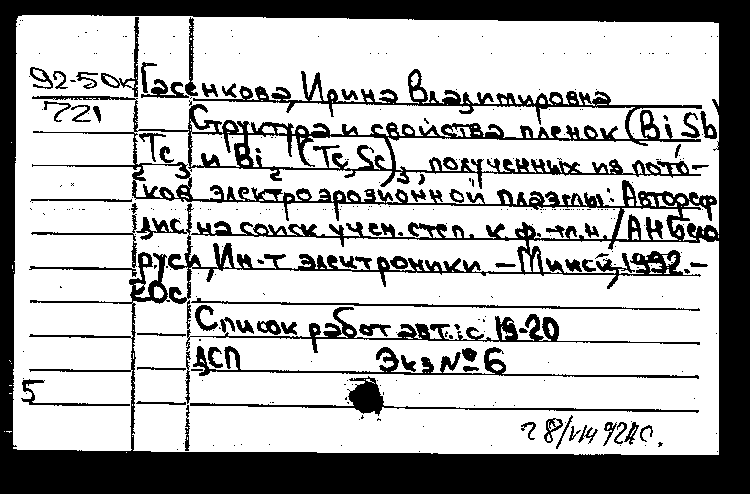 92-50к Гасенкова, Ирина Владимировна
721 Структура и свойства пленок (Bi Sb)
2 Te3 и Bi2 (Te, Se)3, полученных из пото-
ков электроэрозионной плазмы: Автореф
дис. на соиск. учен. степ. к. ф.-м.н. / АН Бела
руси, Ин-т электроники. – Минск, 1992. –
20с.
Список работ авт.: с. 19-20
ДСП Экз № 6
5